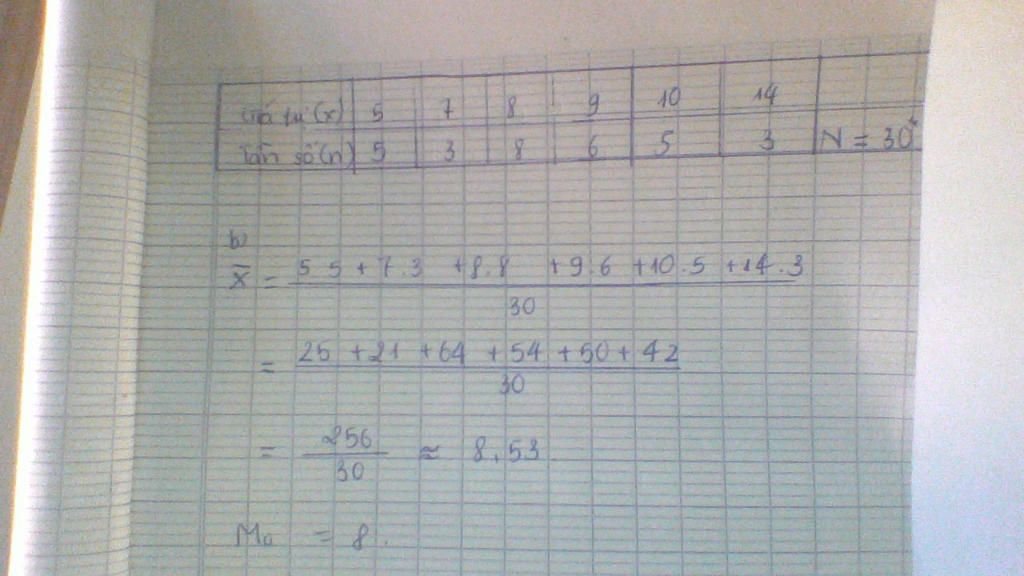 Giá trị (x) 5 7 8 9 10 14
Tần số (n) 5 3 8 6 5 3 N = 30
b)
X̄ = 5 5 + 7.3 + 8.8 + 9.6 + 10.5 + 14.3
30
= 25 + 21 + 64 + 54 + 50 + 42
30
= 256
30
≈ 8,53
M₀ = 8.